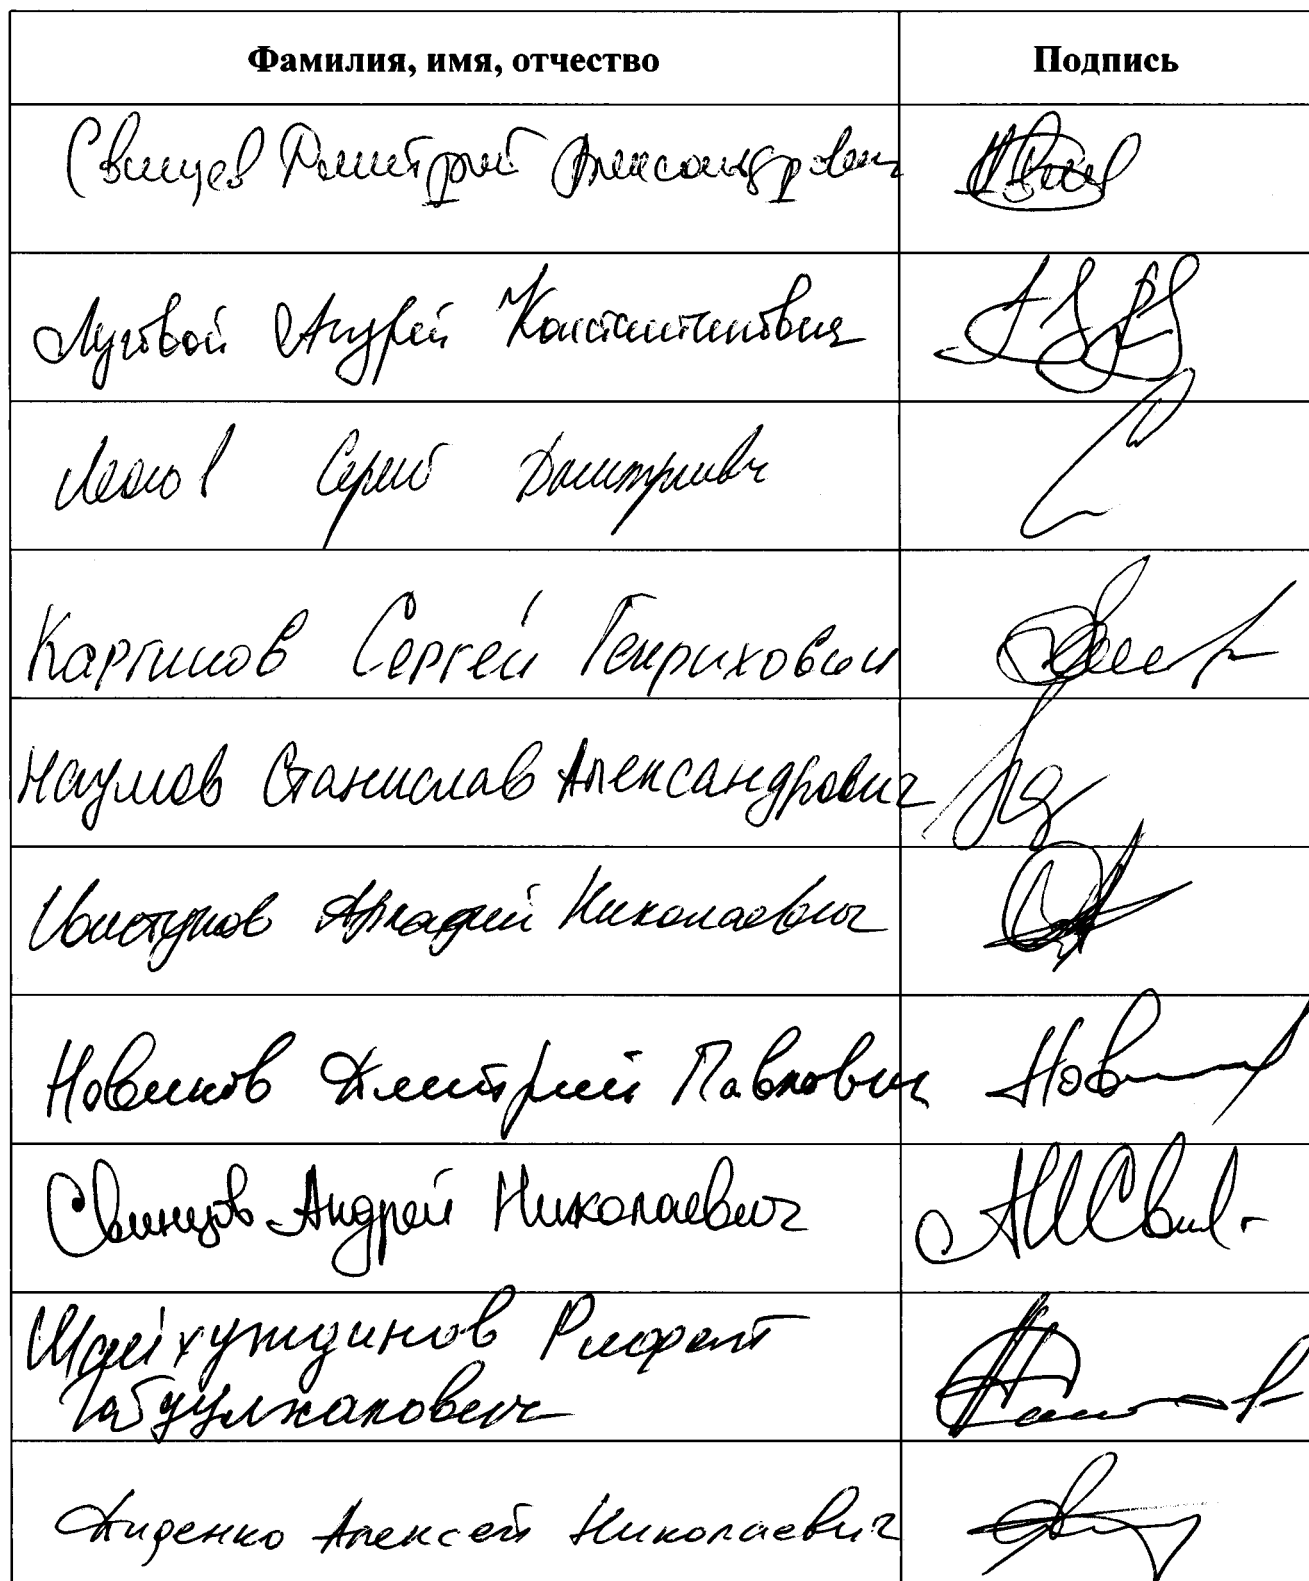 Фамилия, имя, отчество Подпись
Свинцов Дмитрий Александрович
Луговой Андрей Константинович
Леонов Сергей Дмитриевич
Каргинов Сергей Генрихович
Наумов Станислав Александрович
Свистунов Аркадий Николаевич
Новиков Дмитрий Павлович Нов
Свинцов Андрей Николаевич
Шайхутдинов Рифат
Габдулхакович
Диденко Алексей Николаевич